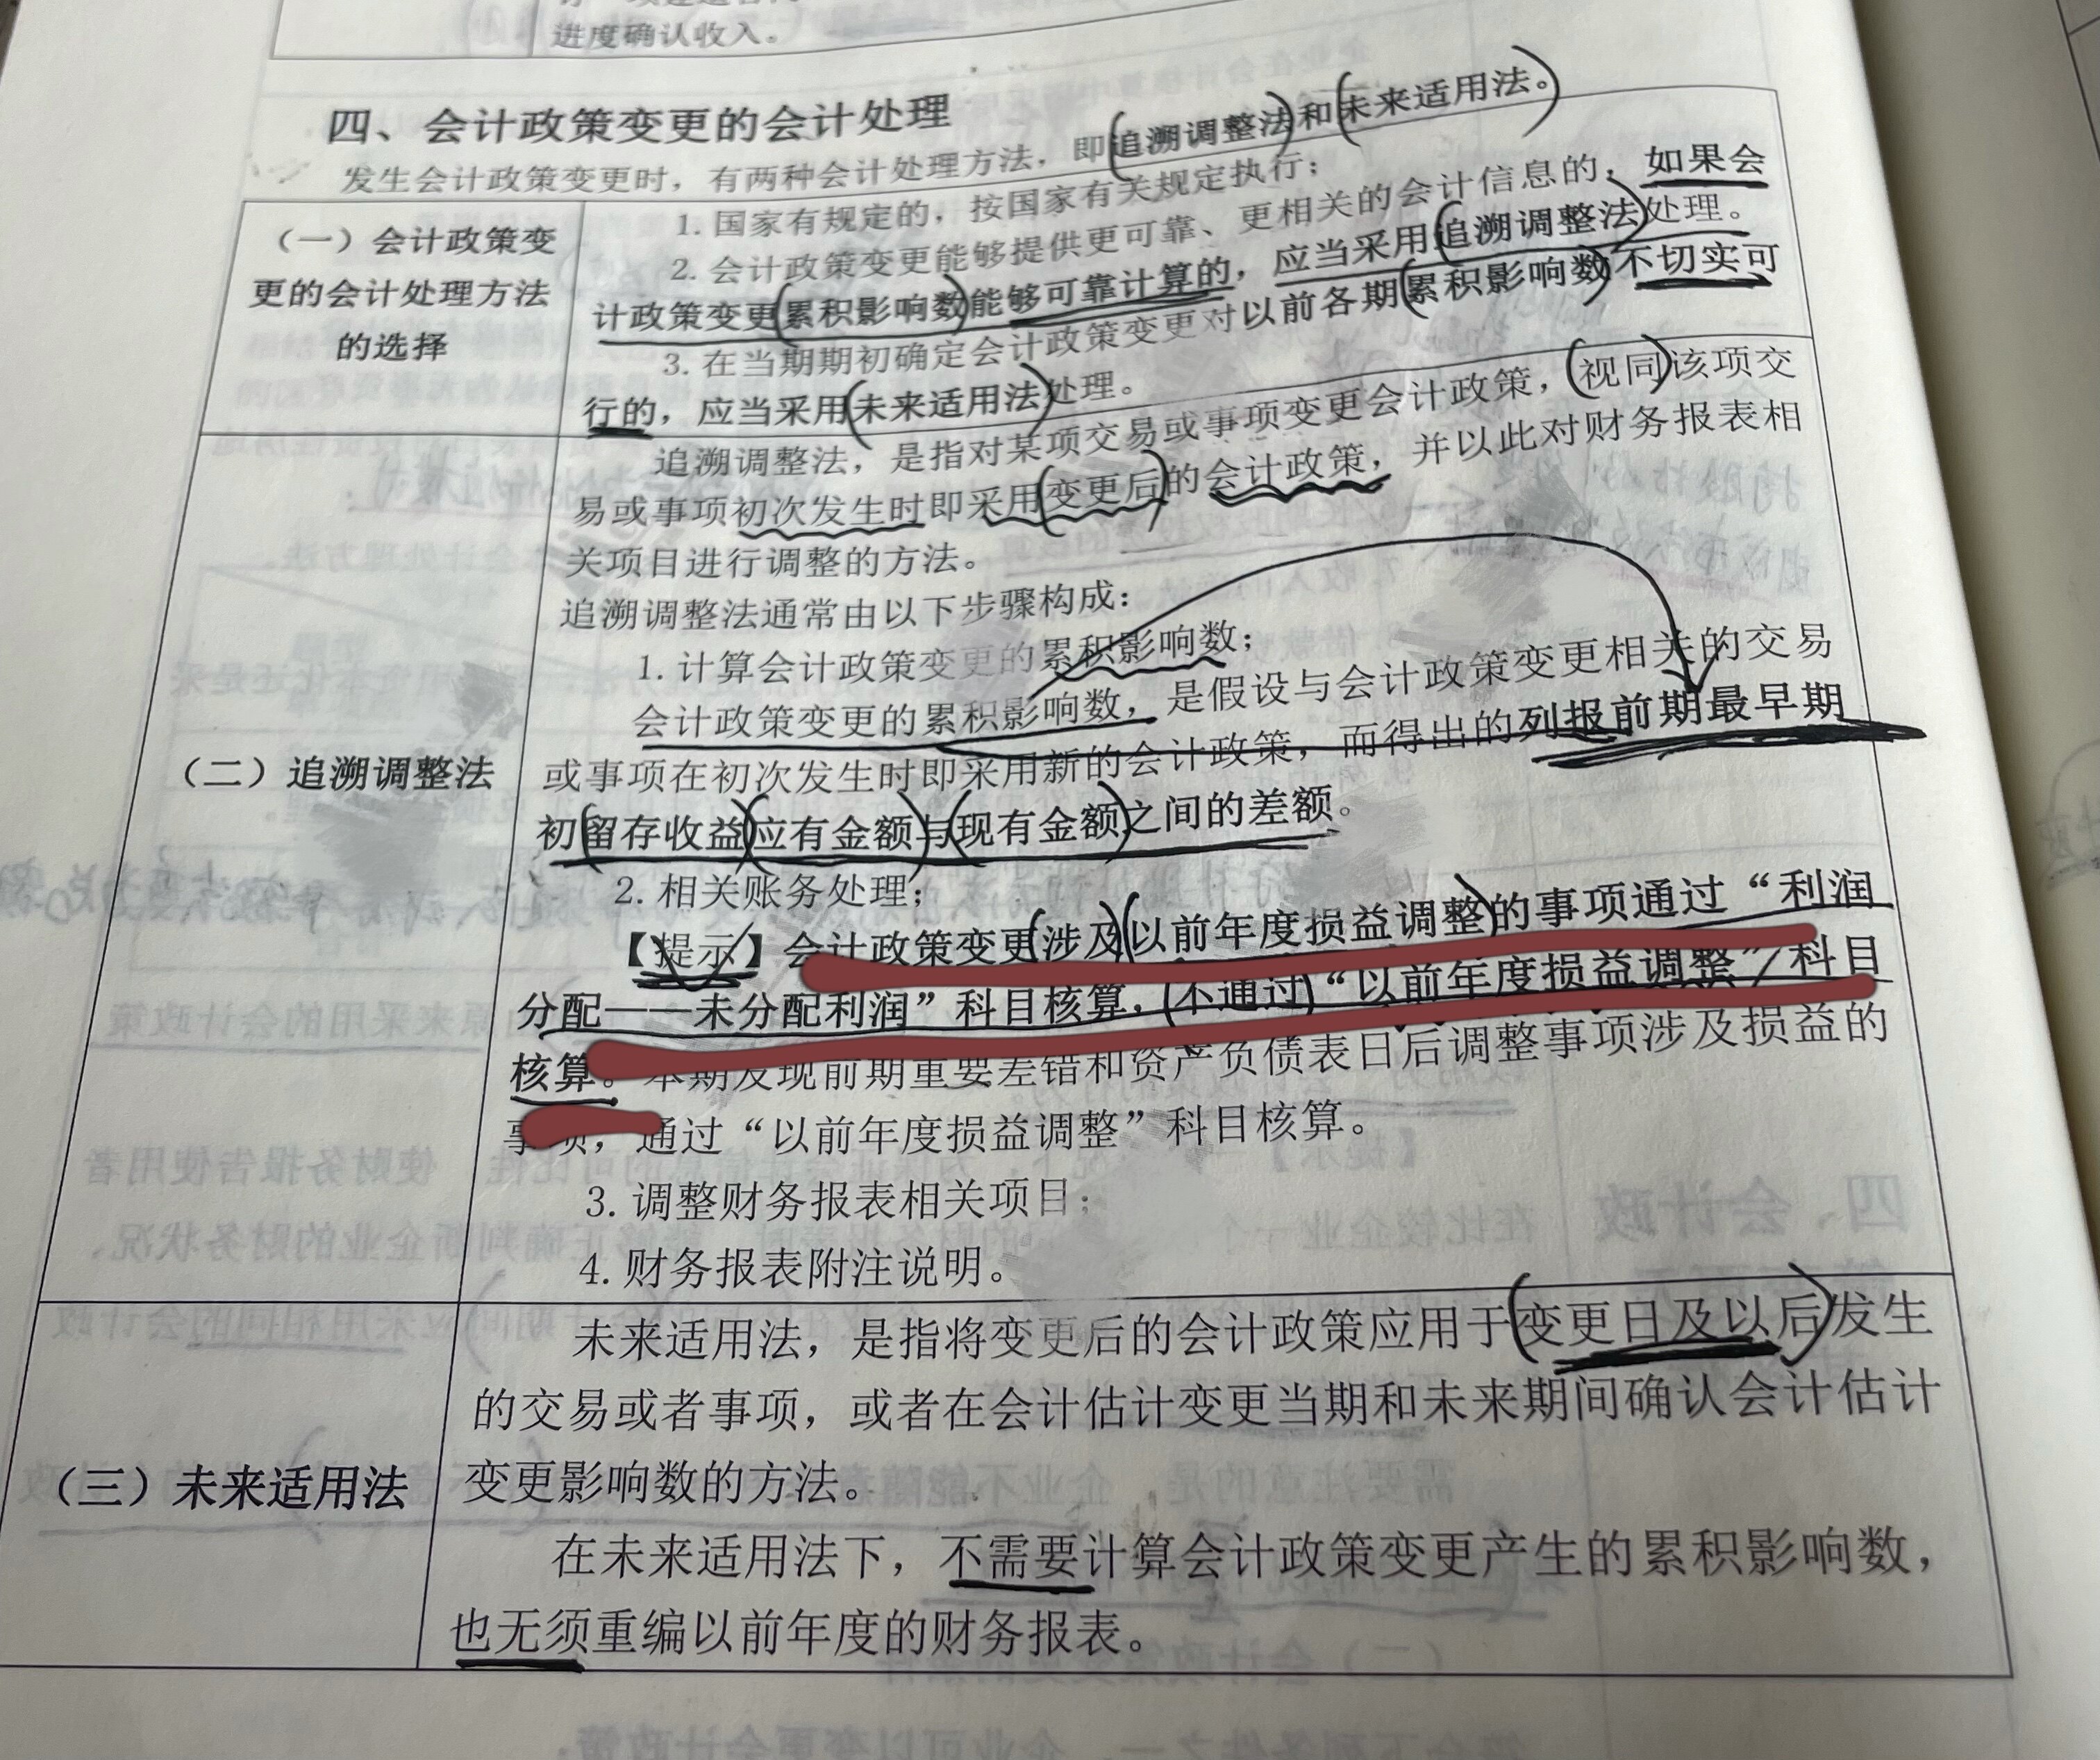 进度确认收入。
四、会计政策变更的会计处理
发生会计政策变更时，有两种会计处理方法，即追溯调整法和未来适用法。
（一）会计政策变
更的会计处理方法
的选择
1. 国家有规定的，按国家有关规定执行；
2. 会计政策变更能够提供更可靠、更相关的会计信息的，如果会
计政策变更累积影响数能够可靠计算的，应当采用追溯调整法处理。
3. 在当期期初确定会计政策变更对以前各期累积影响数不切实可
行的，应当采用未来适用法处理。
（二）追溯调整法
追溯调整法，是指对某项交易或事项变更会计政策，视同该项交
易或事项初次发生时即采用变更后的会计政策，并以此对财务报表相
关项目进行调整的方法。
追溯调整法通常由以下步骤构成：
1. 计算会计政策变更的累积影响数；
会计政策变更的累积影响数，是假设与会计政策变更相关的交易
或事项在初次发生时即采用新的会计政策，而得出的列报前期最早期
初留存收益应有金额与现有金额之间的差额。
2. 相关账务处理；
【提示】会计政策变更涉及以前年度损益调整的事项通过“利润
分配——未分配利润”科目核算，不通过“以前年度损益调整”科目
核算。本期发现前期重要差错和资产负债表日后调整事项涉及损益的
事项，通过“以前年度损益调整”科目核算。
3. 调整财务报表相关项目；
4. 财务报表附注说明。
（三）未来适用法
未来适用法，是指将变更后的会计政策应用于变更日及以后发生
的交易或者事项，或者在会计估计变更当期和未来期间确认会计估计
变更影响数的方法。
在未来适用法下，不需要计算会计政策变更产生的累积影响数，
也无须重编以前年度的财务报表。